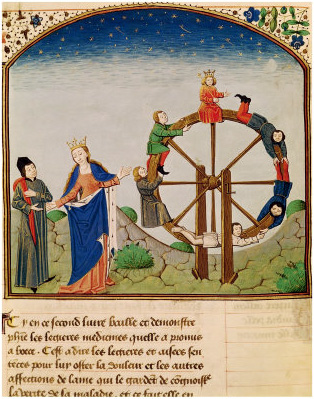 Cy en ce second livre baille et demonstre
phie les legieres medicines quelle a promis
a boece. Cest adire les legieres et aisees sen
teces pour luy oster la douleur et les autres
affections de lame qui le gardēt de cōgnoist
la verite de sa maladie, et ce fait elle en